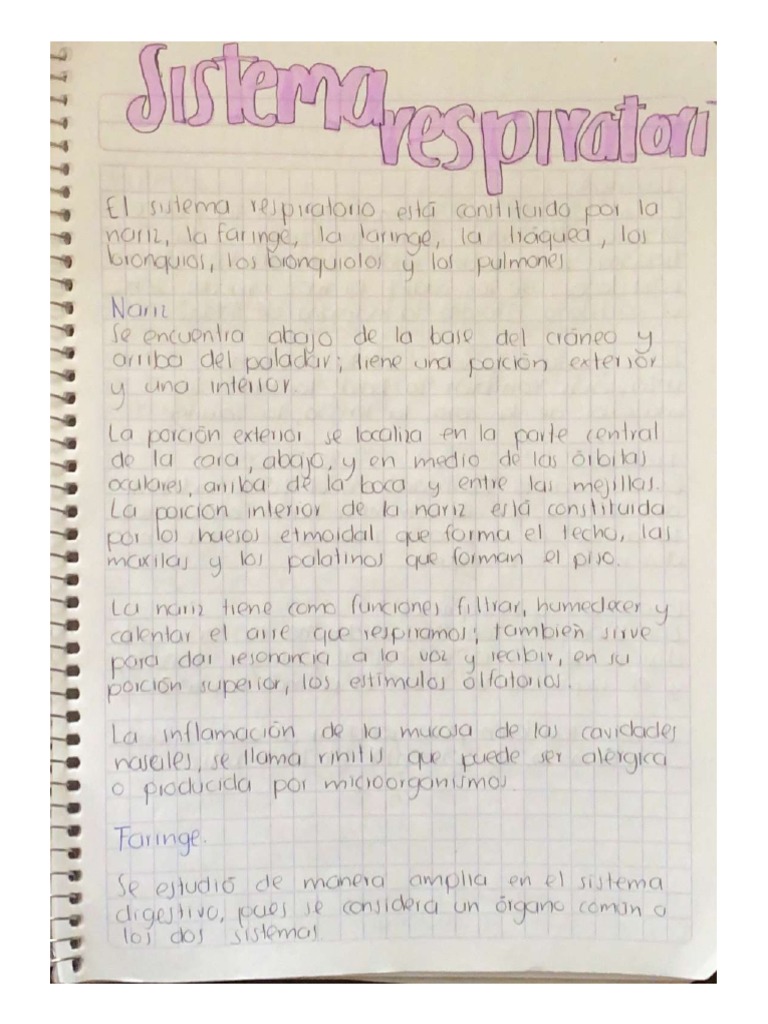 Sistema
respiratori
El sistema respiratorio está constituido por la
nariz, la faringe, la laringe, la tráquea, los
bronquios, los bronquiolos y los pulmones
Nariz
Se encuentra abajo de la base del cráneo y
arriba del paladar; tiene una porción exterior
y una interior.
La porción exterior se localiza en la parte central
de la cara, abajo, y en medio de las órbitas
oculares, arriba de la boca y entre las mejillas.
La porción interior de la nariz está constituida
por los huesos etmoidal que forma el techo, las
maxilas y los palatinos que forman el piso.
La nariz tiene como funciones filtrar, humedecer y
calentar el aire que respiramos; también sirve
para dar resonancia a la voz y recibir, en su
porción superior, los estímulos olfatorios.
La inflamación de la mucosa de las cavidades
nasales, se llama rinitis que puede ser alérgica
o producida por microorganismos
Faringe.
Se estudió de manera amplia en el sistema
digestivo, pues se considera un órgano común a
los dos sistemas.